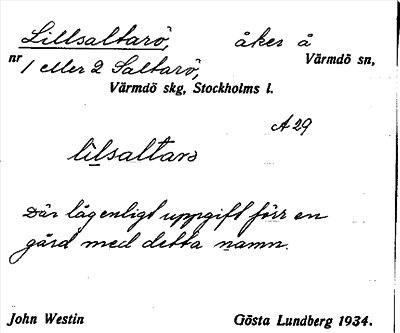 Lillsaltarö, åker å
nr 1 eller 2 Saltarö, Värmdö sn,
Värmdö skg, Stockholms l.
A 29
lilsaltarö
Där låg enligt uppgift förr en
gård med detta namn.
John Westin Gösta Lundberg 1934.